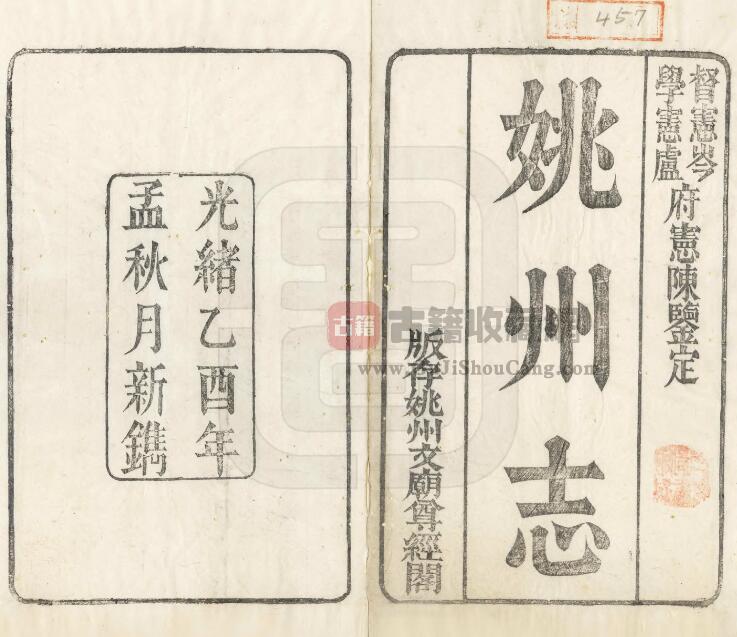 457
督憲岑
學憲盧
府憲陳鑒定
姚州志
版存姚州文廟尊經閣
光緒乙酉年
孟秋月新鐫
古籍
古籍收藏
GuJiShouCang.com